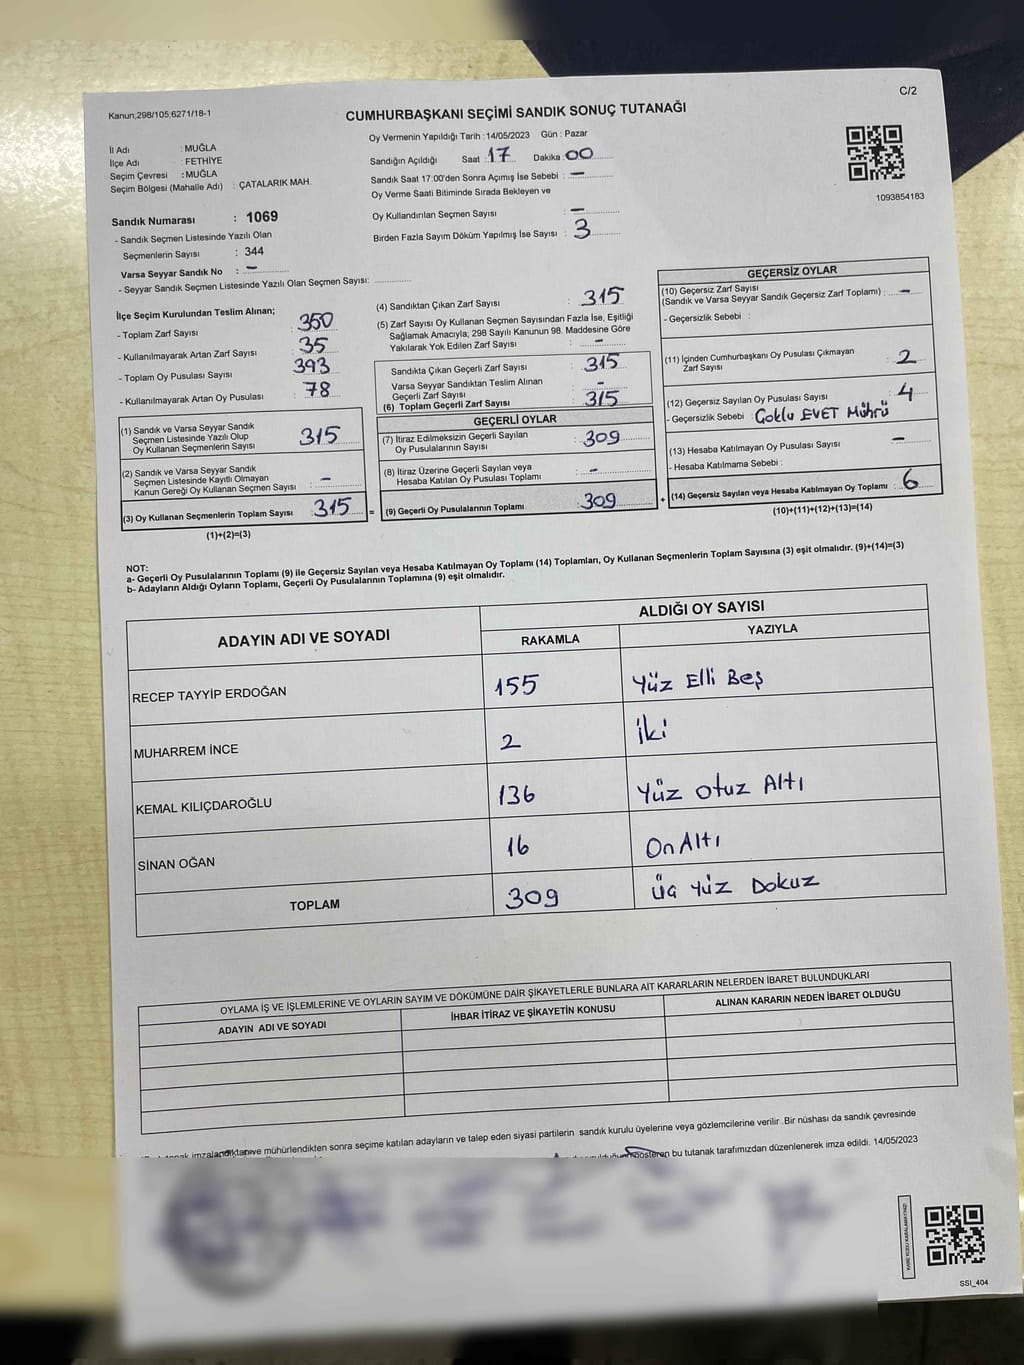 C/2
Kanun;298/105;6271/18-1
CUMHURBAŞKANI SEÇİMİ SANDIK SONUÇ TUTANAĞI
Oy Vermenin Yapıldığı Tarih :14/05/2023 Gün : Pazar
İl Adı : MUĞLA
İlçe Adı : FETHİYE
Seçim Çevresi : MUĞLA
Seçim Bölgesi (Mahalle Adı) : ÇATALARIK MAH.
Sandık Numarası : 1069
- Sandık Seçmen Listesinde Yazılı Olan
Seçmenlerin Sayısı : 344
Varsa Seyyar Sandık No : -
- Seyyar Sandık Seçmen Listesinde Yazılı Olan Seçmen Sayısı:
Sandığın Açıldığı Saat : 17 Dakika : 00
Sandık Saat 17:00'den Sonra Açımış İse Sebebi : -
Oy Verme Saati Bitiminde Sırada Bekleyen ve
Oy Kullandırılan Seçmen Sayısı : -
Birden Fazla Sayım Döküm Yapılmış İse Sayısı : 3
1093854183
İlçe Seçim Kurulundan Teslim Alınan;
- Toplam Zarf Sayısı : 350
- Kullanılmayarak Artan Zarf Sayısı : 35
- Toplam Oy Pusulası Sayısı : 393
- Kullanılmayarak Artan Oy Pusulası : 78
(1) Sandık ve Varsa Seyyar Sandık
Seçmen Listesinde Yazılı Olup
Oy Kullanan Seçmenlerin Sayısı : 315
(2) Sandık ve Varsa Seyyar Sandık
Seçmen Listesinde Kayıtlı Olmayan
Kanun Gereği Oy Kullanan Seçmen Sayısı : -
(3) Oy Kullanan Seçmenlerin Toplam Sayısı : 315 =
(1)+(2)=(3)
(4) Sandıktan Çıkan Zarf Sayısı : 315
(5) Zarf Sayısı Oy Kullanan Seçmen Sayısından Fazla İse, Eşitliği
Sağlamak Amacıyla; 298 Sayılı Kanunun 98. Maddesine Göre
Yakılarak Yok Edilen Zarf Sayısı : -
Sandıkta Çıkan Geçerli Zarf Sayısı : 315
Varsa Seyyar Sandıktan Teslim Alınan
Geçerli Zarf Sayısı : -
(6) Toplam Geçerli Zarf Sayısı : 315
GEÇERLİ OYLAR
(7) İtiraz Edilmeksizin Geçerli Sayılan
Oy Pusulalarının Sayısı : 309
(8) İtiraz Üzerine Geçerli Sayılan veya
Hesaba Katılan Oy Pusulası Toplamı : -
(9) Geçerli Oy Pusulalarının Toplamı : 309 +
GEÇERSİZ OYLAR
(10) Geçersiz Zarf Sayısı
(Sandık ve Varsa Seyyar Sandık Geçersiz Zarf Toplamı) : -
- Geçersizlik Sebebi :
(11) İçinden Cumhurbaşkanı Oy Pusulası Çıkmayan
Zarf Sayısı : 2
(12) Geçersiz Sayılan Oy Pusulası Sayısı : 4
- Geçersizlik Sebebi : Çoklu EVET Mührü
(13) Hesaba Katılmayan Oy Pusulası Sayısı : -
- Hesaba Katılmama Sebebi :
(14) Geçersiz Sayılan veya Hesaba Katılmayan Oy Toplamı : 6
(10)+(11)+(12)+(13)=(14)
NOT:
a- Geçerli Oy Pusulalarının Toplamı (9) ile Geçersiz Sayılan veya Hesaba Katılmayan Oy Toplamı (14) Toplamları, Oy Kullanan Seçmenlerin Toplam Sayısına (3) eşit olmalıdır. (9)+(14)=(3)
b- Adayların Aldığı Oyların Toplamı, Geçerli Oy Pusulalarının Toplamına (9) eşit olmalıdır.
ADAYIN ADI VE SOYADI
ALDIĞI OY SAYISI
RAKAMLA YAZIYLA
RECEP TAYYİP ERDOĞAN 155 Yüz Elli Beş
MUHARREM İNCE 2 İki
KEMAL KILIÇDAROĞLU 136 Yüz Otuz Altı
SİNAN OĞAN 16 On Altı
TOPLAM 309 Üç Yüz Dokuz
OYLAMA İŞ VE İŞLEMLERİNE VE OYLARIN SAYIM VE DÖKÜMÜNE DAİR ŞİKAYETLERLE BUNLARA AİT KARARLARIN NELERDEN İBARET BULUNDUKLARI
ADAYIN ADI VE SOYADI İHBAR İTİRAZ VE ŞİKAYETİN KONUSU ALINAN KARARIN NEDEN İBARET OLDUĞU
tutanak imzalandıktan ve mühürlendikten sonra seçime katılan adayların ve talep eden siyasi partilerin sandık kurulu üyelerine veya gözlemcilerine verilir. Bir nüshası da sandık çevresinde
gösteren bu tutanak tarafımızdan düzenlenerek imza edildi. 14/05/2023
KARE KODU KARALAMAYINIZ!
SSI_404